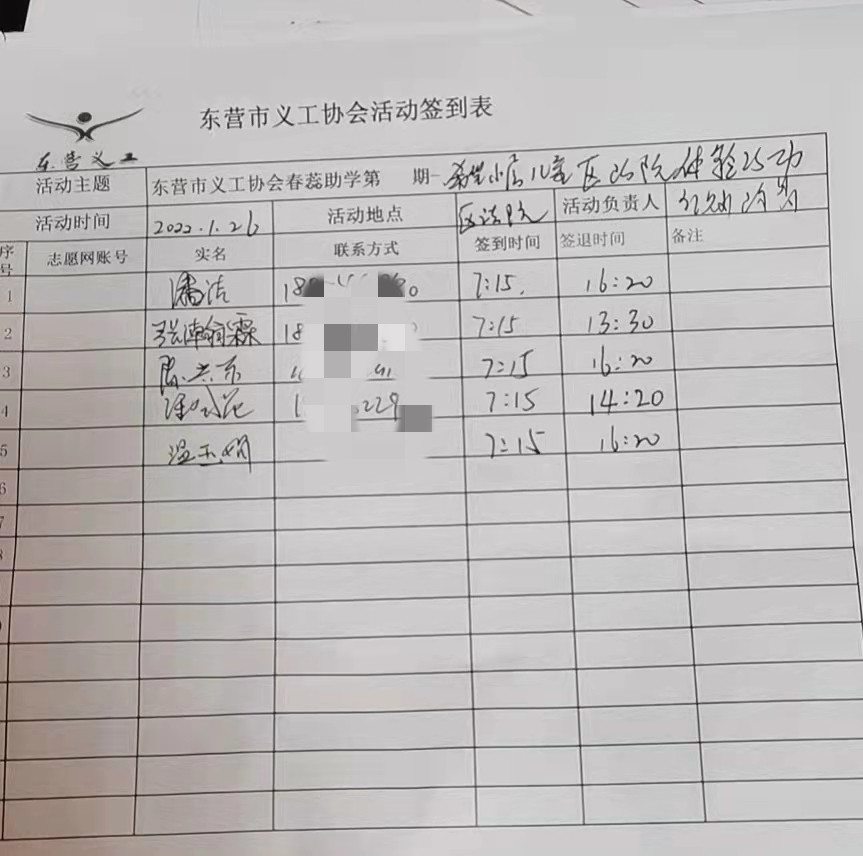 东营市义工协会活动签到表
东营义工
活动主题 东营市义工协会春蕊助学第 期-希望小屋儿童区法院体验活动
活动时间 2022.1.26 活动地点 区法院 活动负责人
序号 志愿网账号 实名 联系方式 签到时间 签退时间 备注
1 潘洁 18 0 7:15. 16:20
2 张瀚霖 18 7:15 13:30
3 7:15 16:20
4 1 229 7:15 14:20
5 温玉娟 7:15 16:20
6
7
8